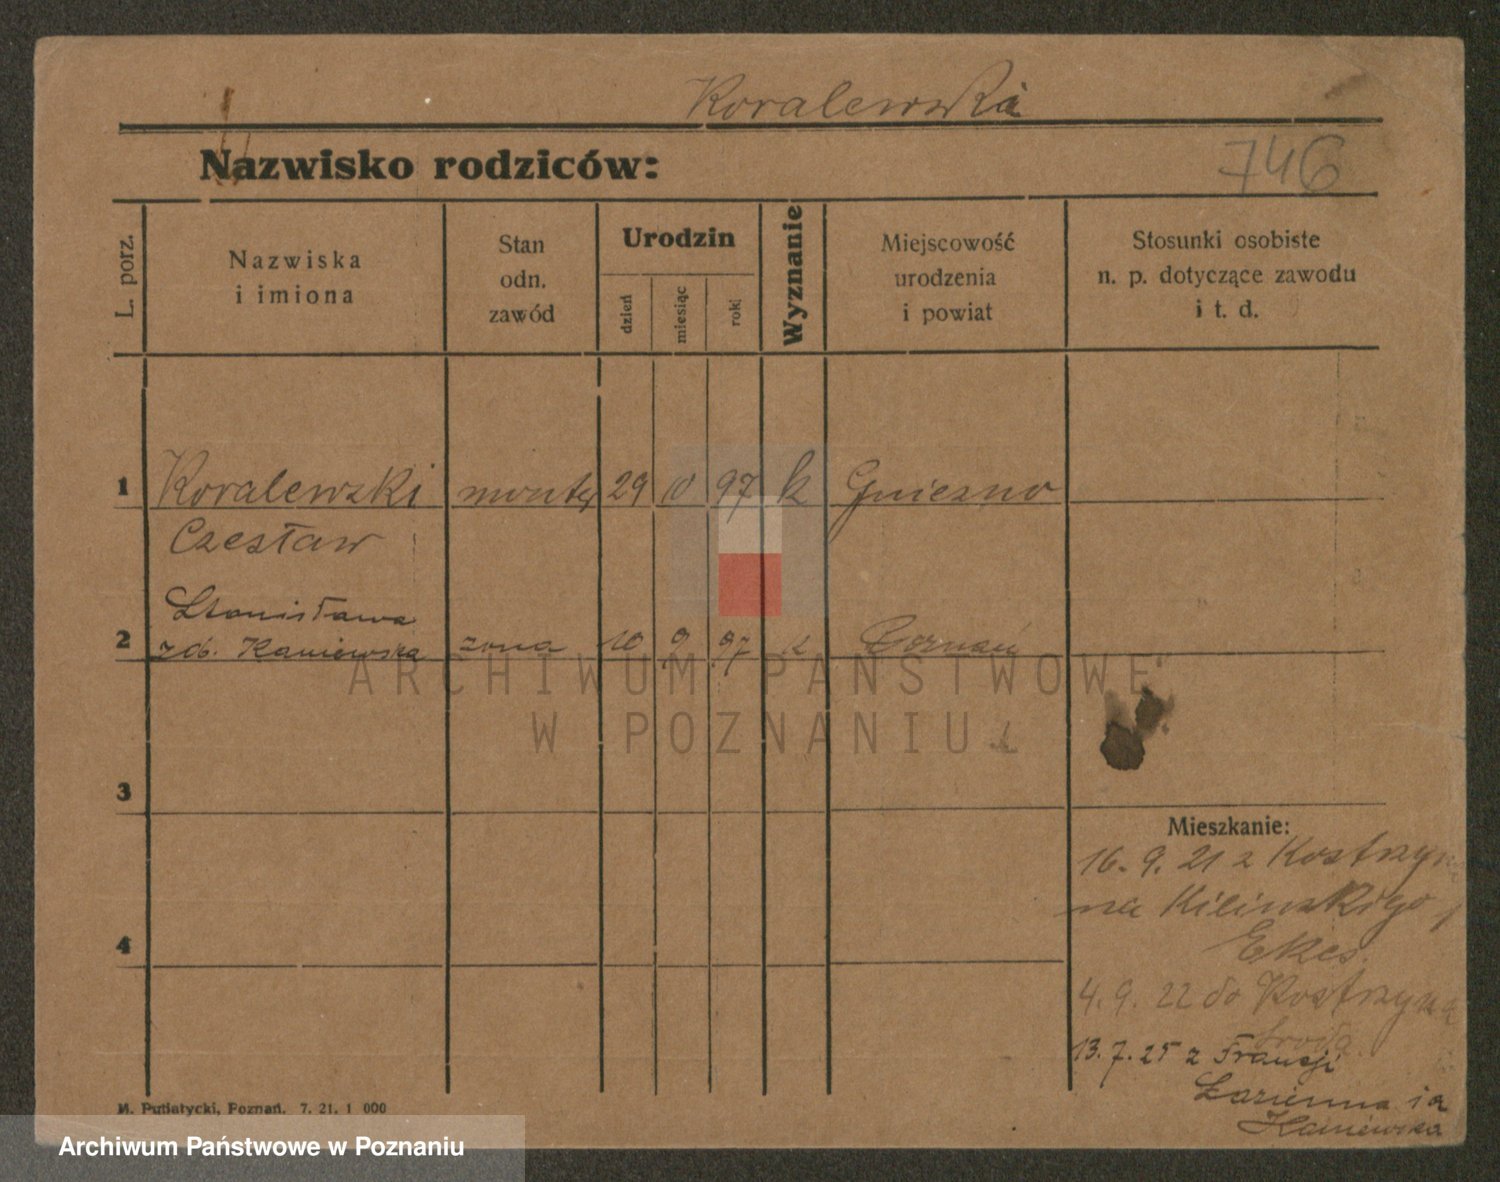 Koralewski
Nazwisko rodziców:
746
L. porz.
Nazwiska
i imiona
Stan
odn.
zawód
Urodzin
dzień
miesiąc
rok
Wyznanie
Miejscowość
urodzenia
i powiat
Stosunki osobiste
n. p. dotyczące zawodu
i t. d.
1 Koralewski monter 29 10 97 k Gniezno
Czesław
Stanisława
2 zd. Kaniewska żona 10 9 97 k Poznań
ARCHIWUM PAŃSTWOWE
W POZNANIU
3
Mieszkanie:
16. 9. 21 z Kostrzyn
na Kilinskiego 1
4
Ekes.
4. 9. 22 do Kostrzyna
Środa
13. 7. 25 z Francji
Łazienna 1a
Kaniewska
M. Putiatycki, Poznań. 7. 21. 1 000
Archiwum Państwowe w Poznaniu